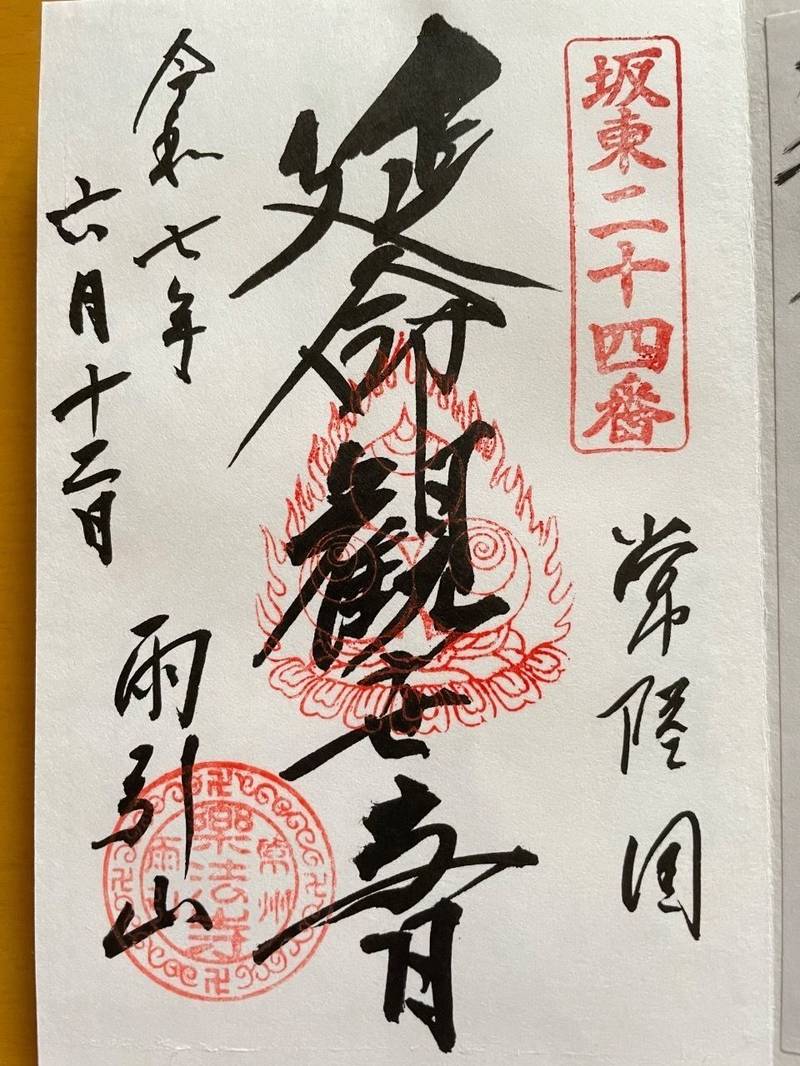 坂東二十四番
常陸国
延命観世音
令和七年
六月十二日
雨引山
常州
樂法寺